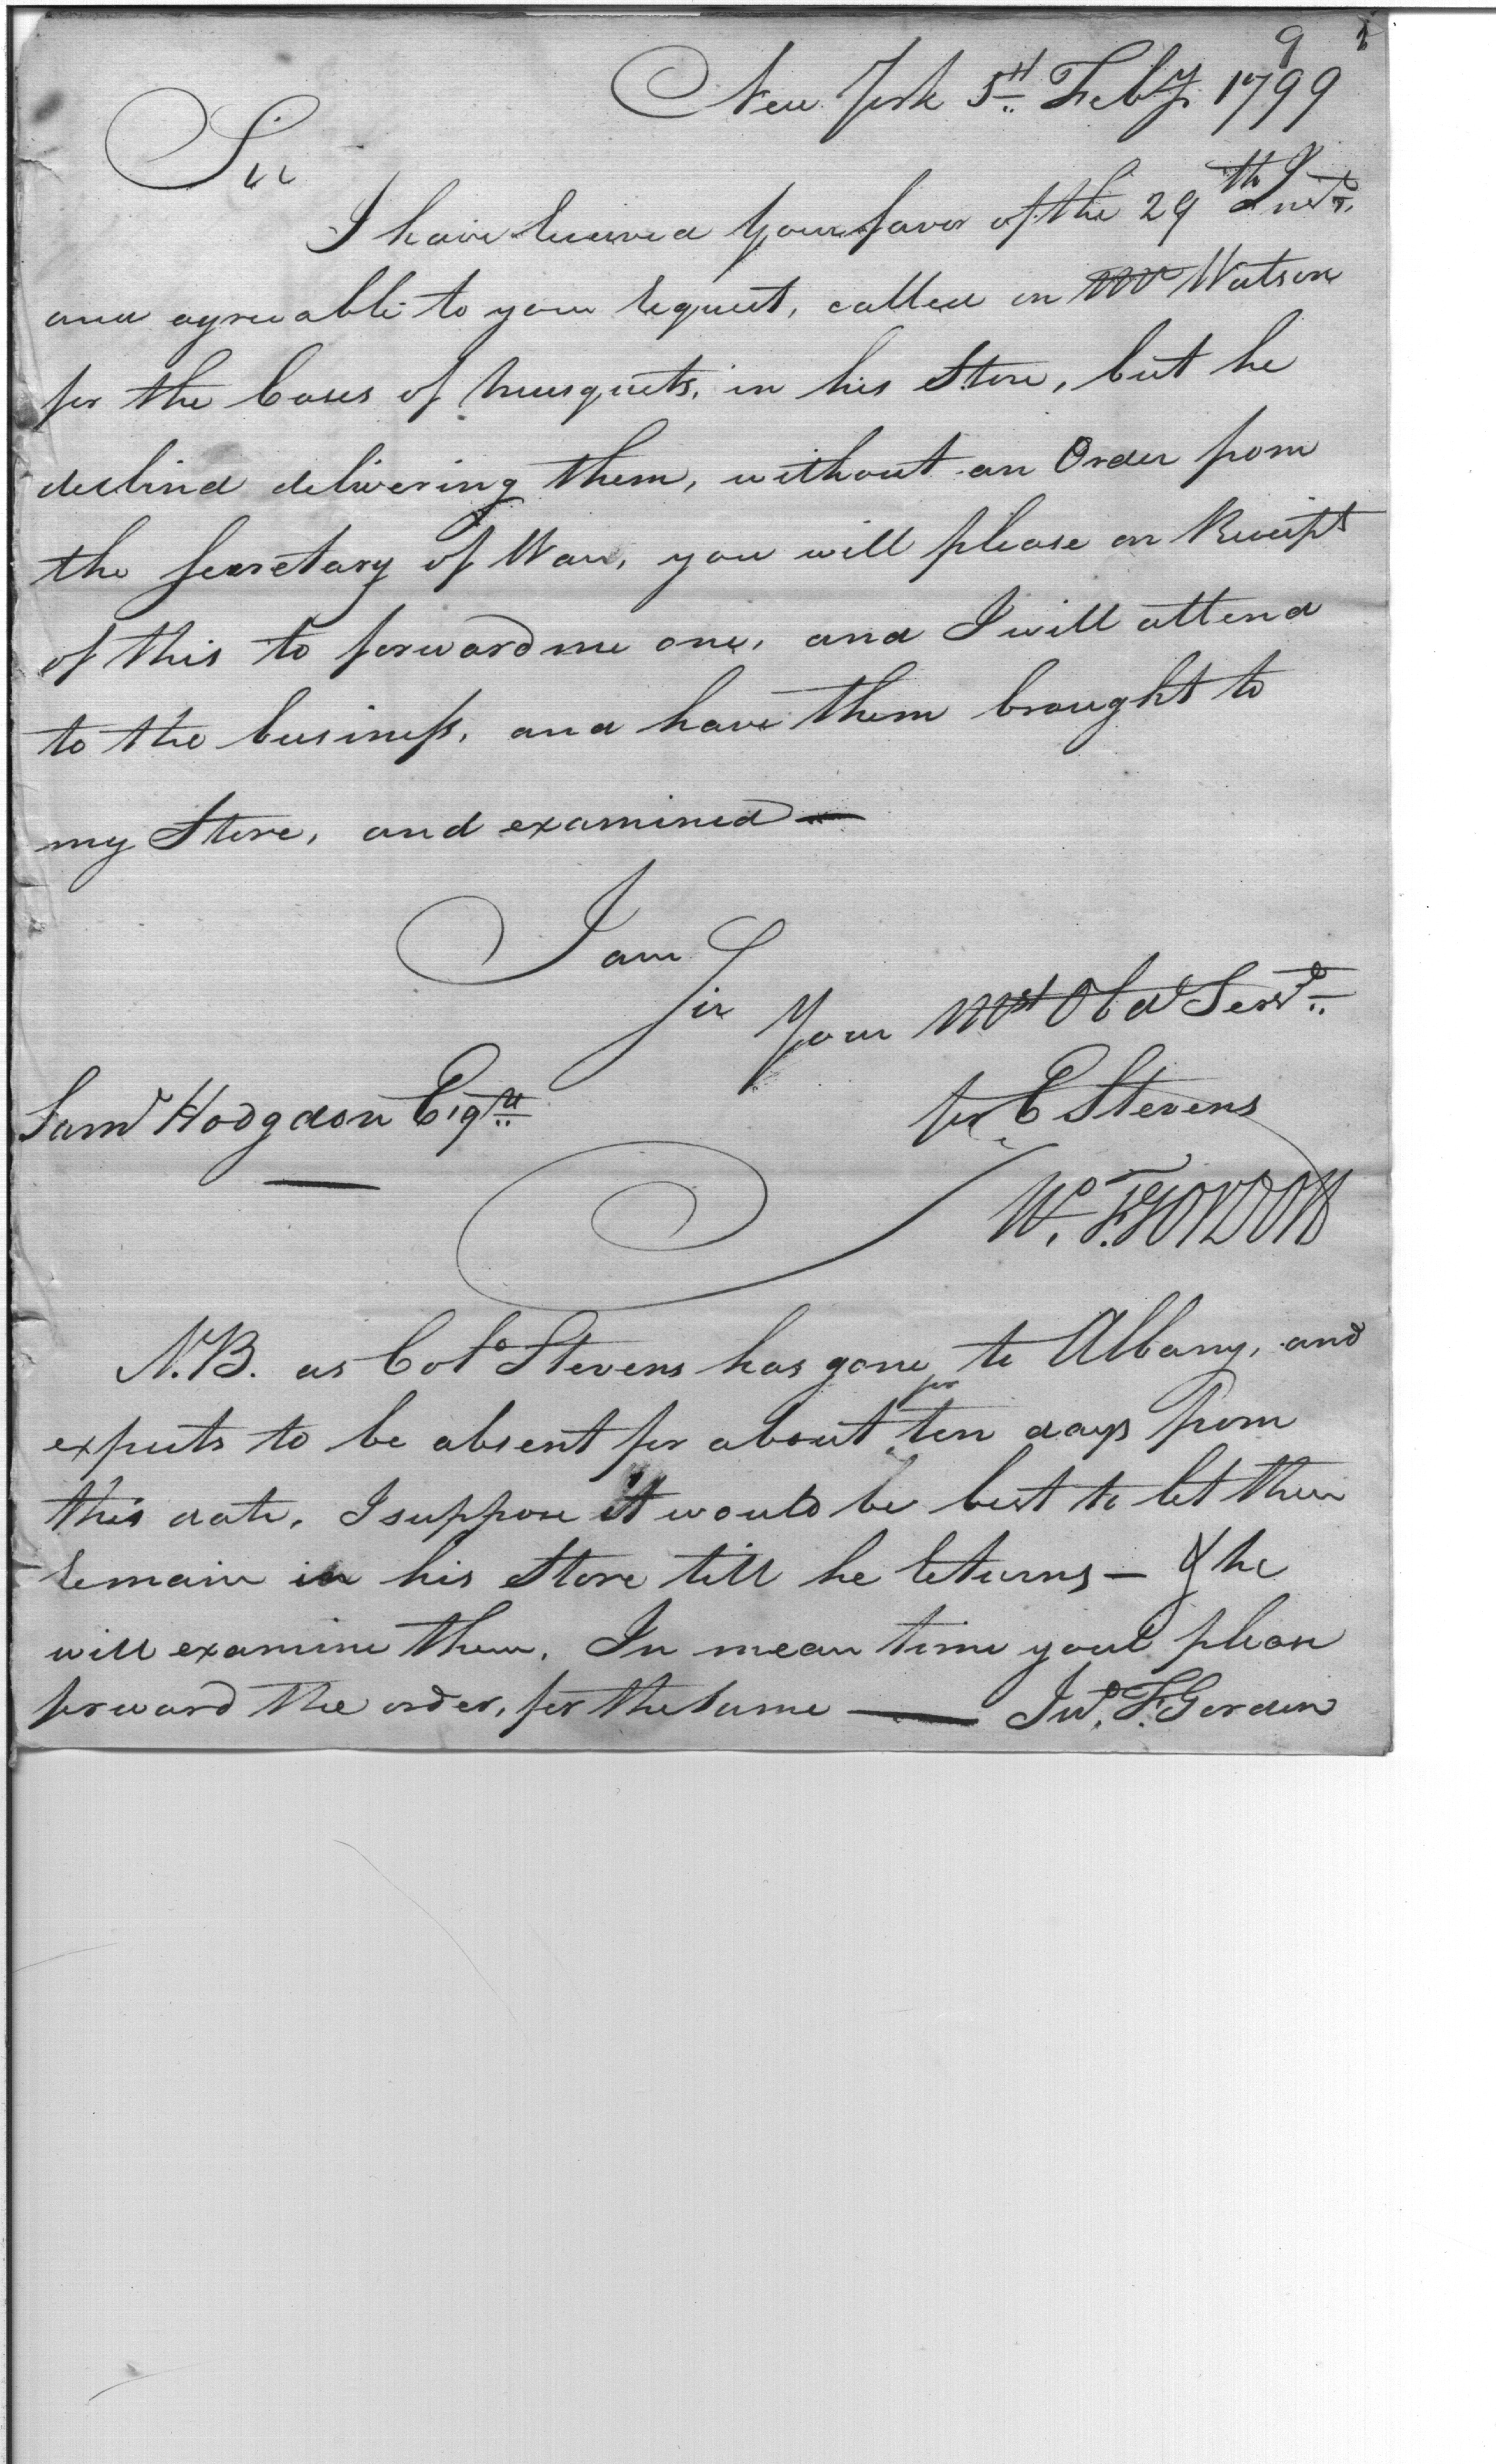 9
New York 5th Feby 1799
Sir
I have received Your favor of the 29th Inst.
and agreeable to your request, called on Mr Watson
for the Cases of musquets, in his Store, but he
declind delivering them, without an Order from
the Secretary of War, you will please on Receipt
of this to forward me one, and I will attend
to the business, and have them brought to
my Store, and examined —
I am
Sir
Your Mst Obd Servt
for E Stevens
Saml Hodgdon Esqre
N.B. as Colo Stevens has gone to Albany, and
expects to be absent for about for ten days from
this date, I suppose it would be best to let them
remain in his Store till he returns — & he
will examine them. In mean time youl please
forward the order, for the same — F. Gordon